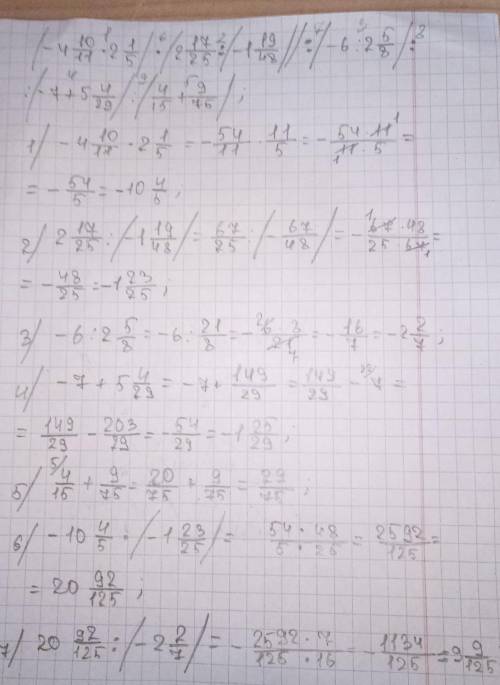 (-4 10/11 · 2 1/5) · (2 17/25 : (-1 19/48)) : (-6 : 2 5/8) :
: (-7 + 5 4/29) · (4/15 + 9/75);
1) -4 10/11 · 2 1/5 = -54/11 · 11/5 = -54·11/11·5 =
= -54/5 = -10 4/5;
2) 2 17/25 : (-1 19/48) = 67/25 : (-67/48) = -67·48/25·67 =
= -48/25 = -1 23/25;
3) -6 : 2 5/8 = -6 : 21/8 = -6·8/21 = -16/7 = -2 2/7;
4) -7 + 5 4/29 = -7 + 149/29 = 149/29 - 7 =
= 149/29 - 203/29 = -54/29 = -1 25/29;
5) 4/15 + 9/75 = 20/75 + 9/75 = 29/75;
6) -10 4/5 · (-1 23/25) = 54·48/5·25 = 2592/125 =
= 20 92/125;
7) 20 92/125 : (-2 2/7) = -2592·7/125·16 = -1134/125 = 9 9/125